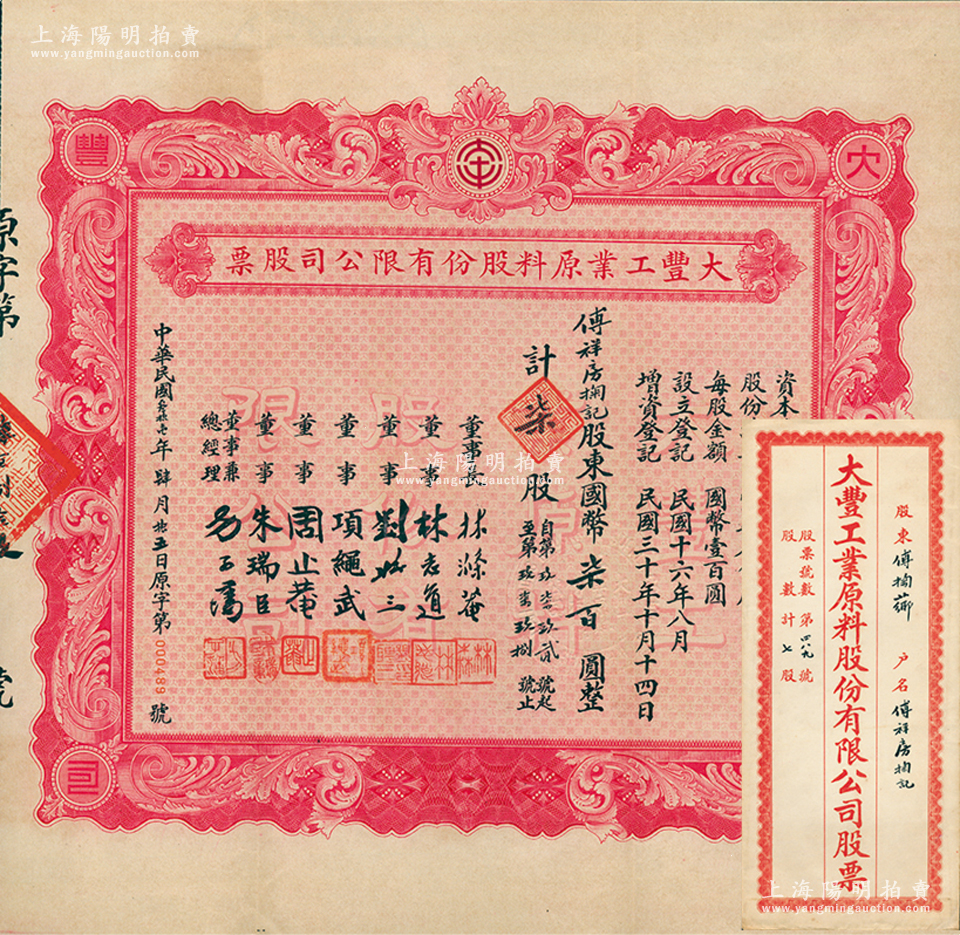 上海陽明拍賣
www.yangmingauction.com
大
豐
司
大豐工業原料股份有限公司股票
資本
股份
每股金額 國幣壹百圓
設立登記 民國十六年八月
增資登記 民國三十年十月十四日
傅祥房掬記股東國幣柒百圓整
計柒股
自第玖柒玖貳號起
至第玖柒玖捌號止
董事長 林滌菴
董事
董事
董事 項繩武
董事 周止菴
董事 朱瑞臣
董事兼總經理
中華民國叁拾年肆月拾五日原字第000489號
原字第
號
上海陽明拍賣
www.yangmingauction.com
股東傅掬 戶名傅祥房掬記
大豐工業原料股份有限公司股票
股票號數 第四八九號
股數計 七股
上海陽明拍賣
www.yangmingauction.com